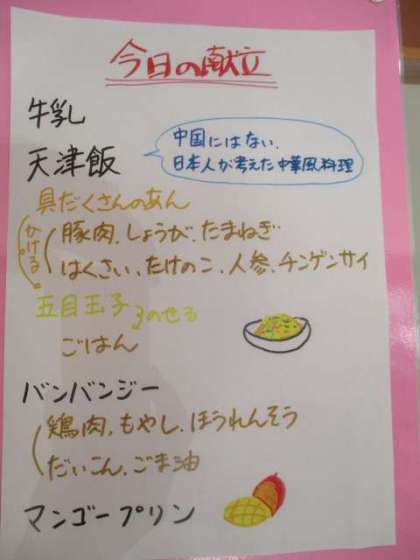 今日の献立
牛乳
天津飯
中国にはない、
日本人が考えた中華風料理
具だくさんのあん
かける。
豚肉、しょうが、たまねぎ
はくさい、たけのこ、人参、チンゲンサイ
五目玉子
のせる
ごはん
バンバンジー
鶏肉、もやし、ほうれんそう
だいこん、ごま油
マンゴープリン